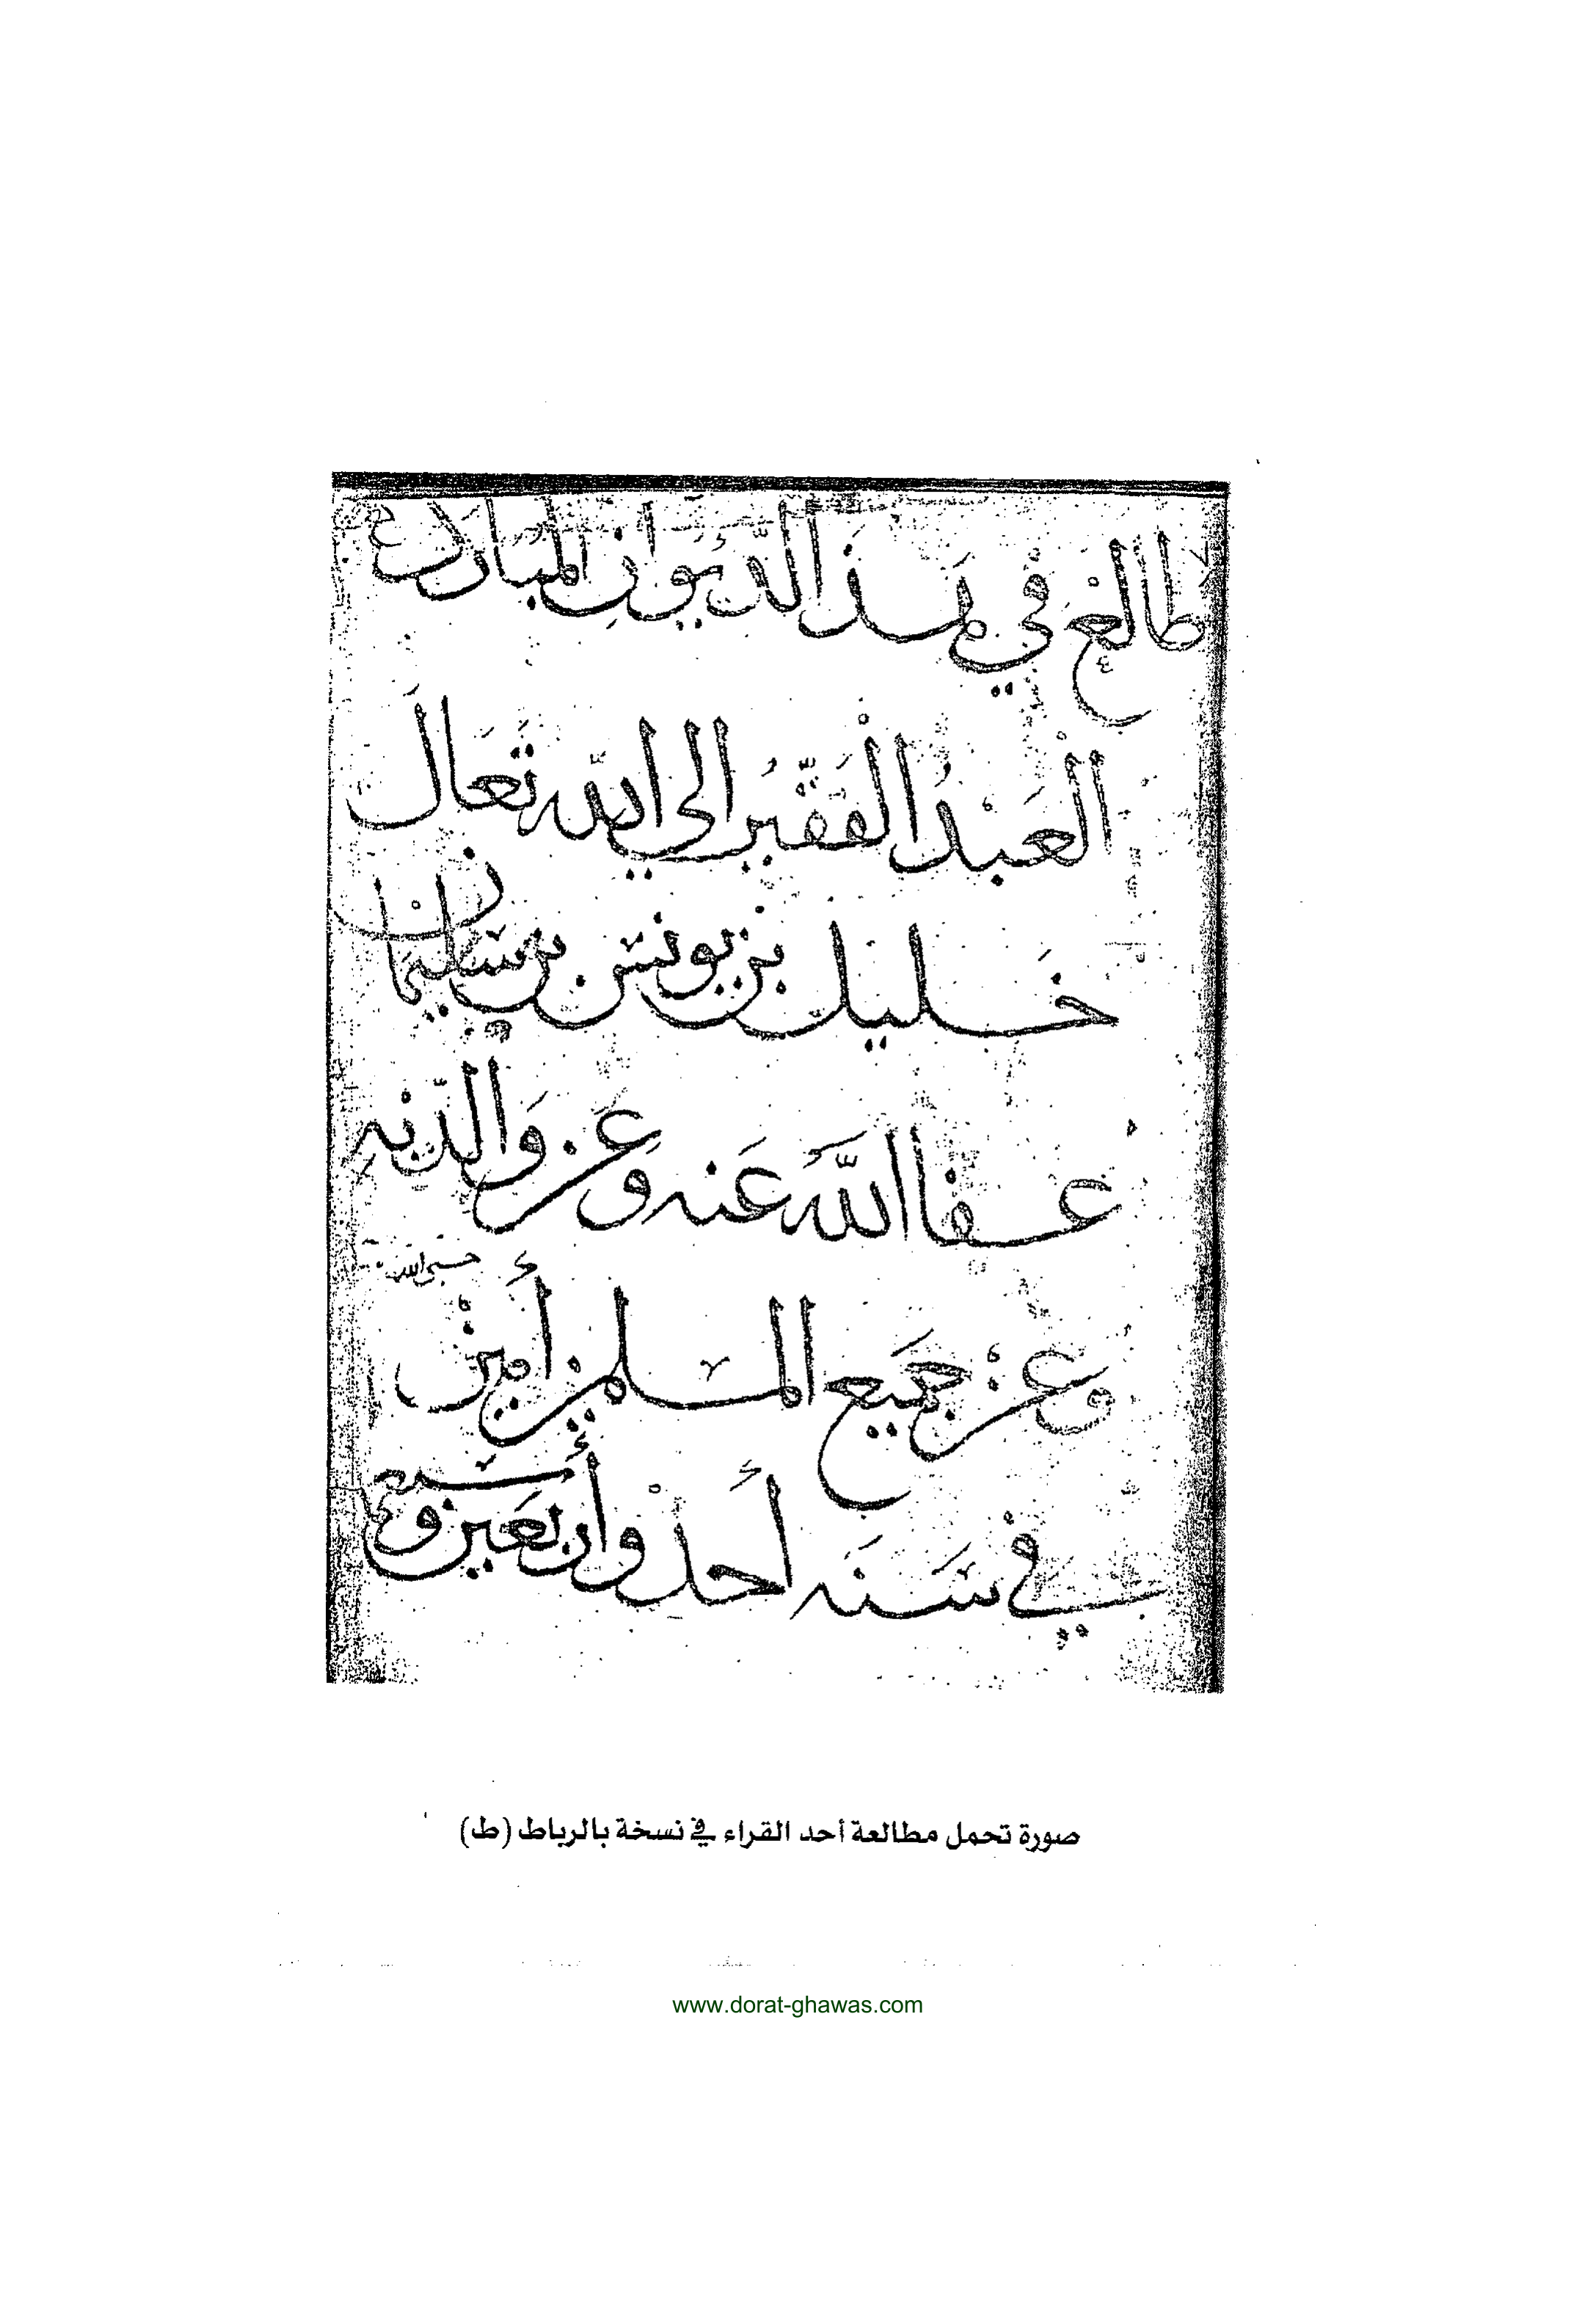 طالع في هذا الديوان المبارك
العَبْدُ الفَقِيرُ الي الله تعال
خليل بن يونس بن سليمان
عفا الله عنه وعن والديه
حسبي الله
وعن جميع المسلمين أمين
في سنه أحد وأربعين وسبعما
صورة تحمل مطالعة أحد القراء في نسخة بالرباط (ط)
www.dorat-ghawas.com